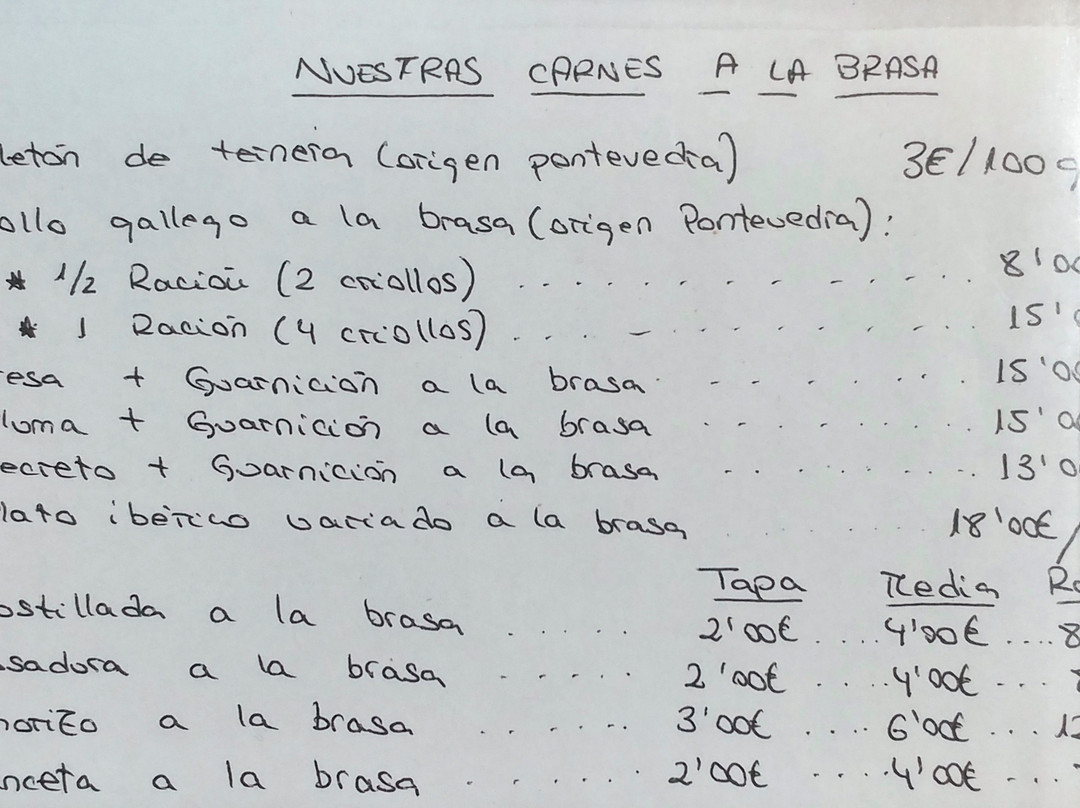 NUESTRAS CARNES A LA BRASA
letón de ternera (origen pontevedra) 3€/100 g
ollo gallego a la brasa (origen Pontevedra):
* 1/2 Ración (2 criollos) . . . . . . . . . . . . . 8'00
* 1 Ración (4 criollos) . . . . . . . . . . . . . 15'0
resa + Guarnición a la brasa . . . . . . . . 15'00
luma + Guarnición a la brasa . . . . . . . . 15'00
ecreto + Guarnición a la brasa . . . . . . . . 13'0
lato ibérico variado a la brasa . . . . 18'00€/
Tapa Media Ra
ostillada a la brasa . . . . . 2'00€ ....4'00€ ....8
asadora a la brasa . . . . . 2'00€ ....4'00€ ...
horizo a la brasa . . . . . . 3'00€ ....6'00€ ...12
nceta a la brasa . . . . . . 2'00€ ....4'00€ ...